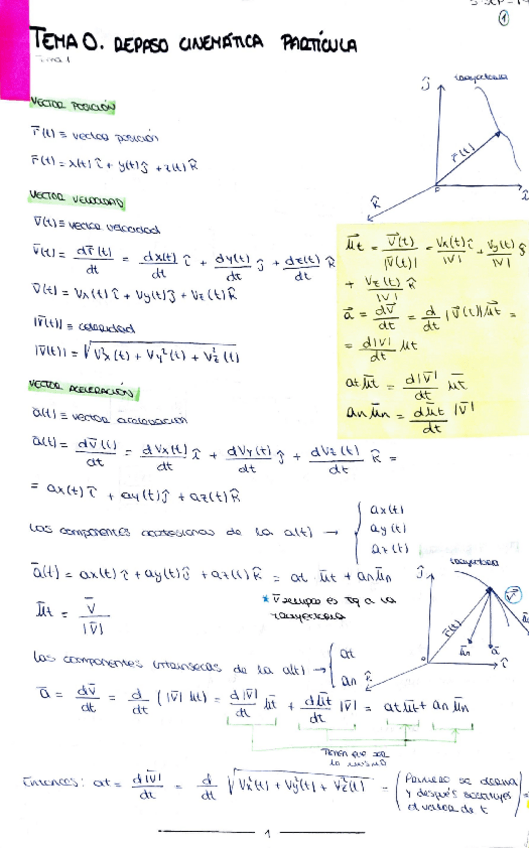 1
TEMA 0. REPASO CINEMÁTICA PARTÍCULA
VECTOR POSICIÓN
r̄(t) ≡ vector posición
r̄(t) = x(t) î + y(t) ĵ + z(t) k̂
trayectoria
ĵ
r̄(t)
î
k̂
VECTOR VELOCIDAD
v̄(t) ≡ vector velocidad
v̄(t) = dr̄(t)/dt = dx(t)/dt î + dy(t)/dt ĵ + dz(t)/dt k̂
v̄(t) = vx(t) î + vy(t) ĵ + vz(t) k̂
|v̄(t)| ≡ celeridad
|v̄(t)| = √(vx²(t) + vy²(t) + vz²(t))
ūt = v̄(t)/|v̄(t)| = vx(t)/|v| î + vy(t)/|v| ĵ
+ vz(t)/|v| k̂
ā = dv̄/dt = d/dt |v̄(t)| ūt =
= d|v|/dt ūt
at ūt = d|v̄|/dt ūt
an ūn = dūt/dt |v̄|
VECTOR ACELERACIÓN
ā(t) ≡ vector aceleración
ā(t) = dv̄(t)/dt = dvx(t)/dt î + dvy(t)/dt ĵ + dvz(t)/dt k̂ =
= ax(t) î + ay(t) ĵ + az(t) k̂
Las componentes cartesianas de la a(t) → { ax(t)
ay(t)
az(t)
ā(t) = ax(t) î + ay(t) ĵ + az(t) k̂ = at ūt + an ūn
* v̄ siempre es tg a la
trayectoria
ūt = v̄/|v̄|
trayectoria
ĵ
v̄
r̄(t)
ān
ā
î
k̂
Las componentes intrínsecas de la a(t) → { at
an
ā = dv̄/dt = d/dt (|v̄| ūt) = d|v̄|/dt ūt + dūt/dt |v̄| = at ūt + an ūn
TIENEN QUE SER
LO MISMO
Entonces: at = d|v̄|/dt = d/dt √(vx²(t) + vy²(t) + vz²(t)) = (Primero se deriva
y después sustituyes
el valor de t) =
1